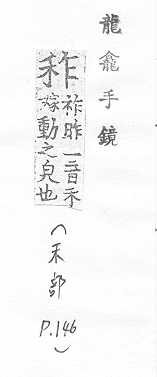 龍龕手鏡
秨
祚昨二音禾
動之皃也
(禾部 P.146)